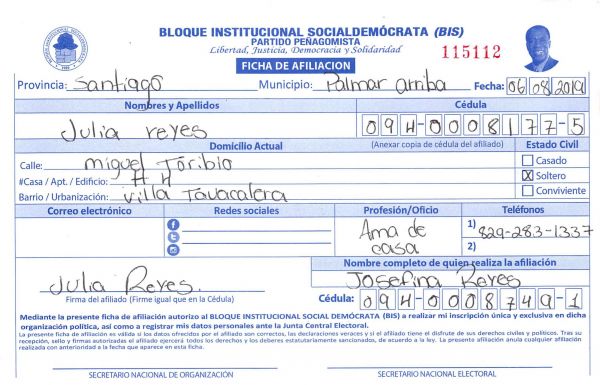 BLOQUE INSTITUCIONAL SOCIALDEMÓCRATA (BIS)
PARTIDO PEÑAGOMISTA
Libertad, Justicia, Democracia y Solidaridad
115112
FICHA DE AFILIACION
Provincia: Santiago Municipio: Palmar arriba Fecha: 06/08/2019
Nombres y Apellidos Cédula
Julia reyes 094-0008177-5
Domicilio Actual (Anexar copia de cédula del afiliado) Estado Civil
Calle: miguel Toribio Casado
#Casa / Apt. / Edificio: # 4 X Soltero
Barrio / Urbanización: Villa Tavacalera Conviviente
Correo electrónico Redes sociales Profesión/Oficio Teléfonos
Ama de casa 1) 829-283-1337
2)
Nombre completo de quien realiza la afiliación
Julia Reyes. Josefina Reyes
Firma del afiliado (Firme igual que en la Cédula) Cédula: 094-0008749-1
Mediante la presente ficha de afiliación autorizo al BLOQUE INSTITUCIONAL SOCIAL DEMÓCRATA (BIS) a realizar mi inscripción única y exclusiva en dicha
organización política, así como a registrar mis datos personales ante la Junta Central Electoral.
La presente ficha de afiliación es válida si los datos ofrecidos por el afiliado son correctos, las declaraciones veraces y si el afiliado tiene el disfrute de sus derechos civiles y políticos. Tras su
recepción, sello y firmas autorizadas el afiliado ejercerá todos los derechos y los deberes estatutariamente sancionados, de acuerdo a la ley. La presente afiliación anula cualquier afiliación
realizada con anterioridad a la fecha que aparece en esta ficha.
SECRETARIO NACIONAL DE ORGANIZACIÓN SECRETARIO NACIONAL ELECTORAL